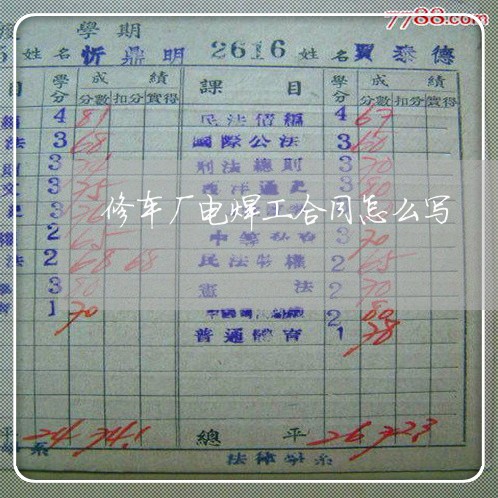 7788.com
學期
姓名 忻鼎明 2616 姓名 賈泰德
目 學分 成績 課目 學分 成績
分數 扣分 實得 分數 扣分 實得
4 81 民法債編 4 67
法 3 68 國際公法 3 60
3 刑法總則 3 70
3 75 西洋通史 3 80
修车厂电焊工合同怎么写
2 65 3 70
法 2 68 68 民法物權 2 65
3 80 憲法 2 70
1 70 2 80
普通體育 1 78
平 24 74.1 總平 26 72.3
系 法律學系